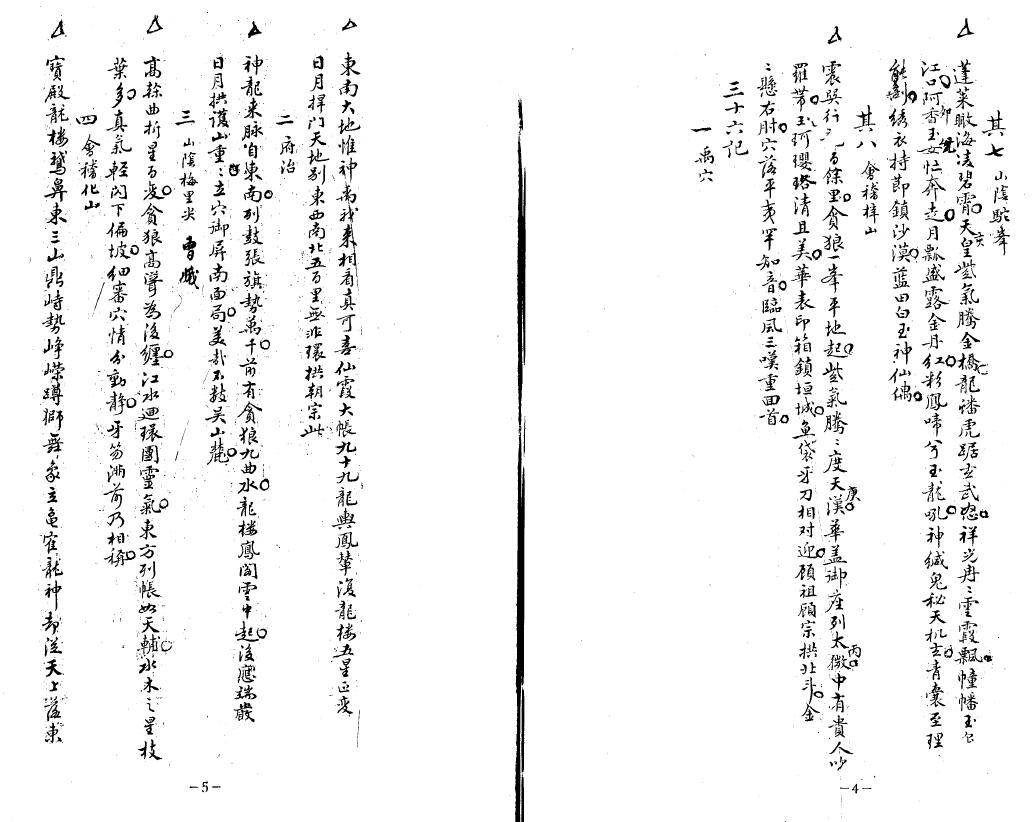 其七 山陰駝峯
蓬萊瞰海凌碧霄天皇紫氣騰金橋龍蟠虎踞玄武忽祥光冉冉雲霞飄幢幡玉
江口阿香玉女忙奔走月瓢盛露金丹紅彩鳳啼兮玉龍吼神緘鬼秘天机玄青囊至理
能剖綉衣持節鎮沙漠藍田白玉神仙偶
其八 會稽梓山
震巽行 百餘里貪狼一峯平地起紫氣騰騰度天漢華盖御座列太微中有貴人
羅帶玉珂瓔珞清且美華表印箱鎮垣城魚袋牙刀相对迎顧祖顧宗拱北斗金
懸右肘穴落平夷罕知音臨風三嘆重回首
三十六記
一 禹穴
東南大地惟神禹我來相看真可喜仙霞大帳九十九龍輿鳳輦復龍楼五星正变
日月捍門天地别東西南北五百里無非環拱朝宗此
二 府治
神龍来脉自東南列鼓張旗勢萬千前有貪狼九曲水龍楼鳳閣雲中起後應端嚴
日月拱護山重重立穴御屏南面局美哉不数吴山麓
三 山陰梅里尖 曹娥
高峰曲折星百变貪狼高聳為後纏江水迴環團靈氣東方列帳如天輔水木之星枝
葉多真氣輕閃下偏坡細審穴情分動静牙笏满前乃相稱
四 會稽化山
寶殿龍楼鵞鼻東三山鼎峙勢崢嶸蹲獅舞象立龜雀龍神却從天上落東
-5-
-4-